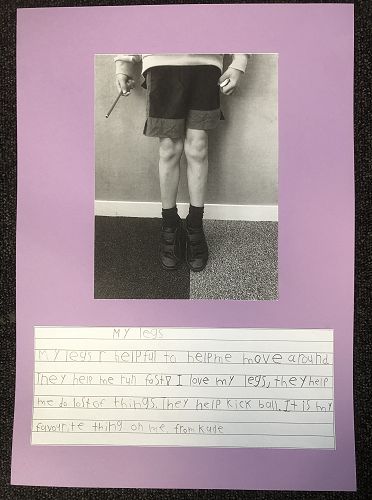 My legs
My legs r helpful to help me move around
They help me run fast! I love my legs, they help
me do lost of things. They help kick ball. It is my
favourite thing on me. from